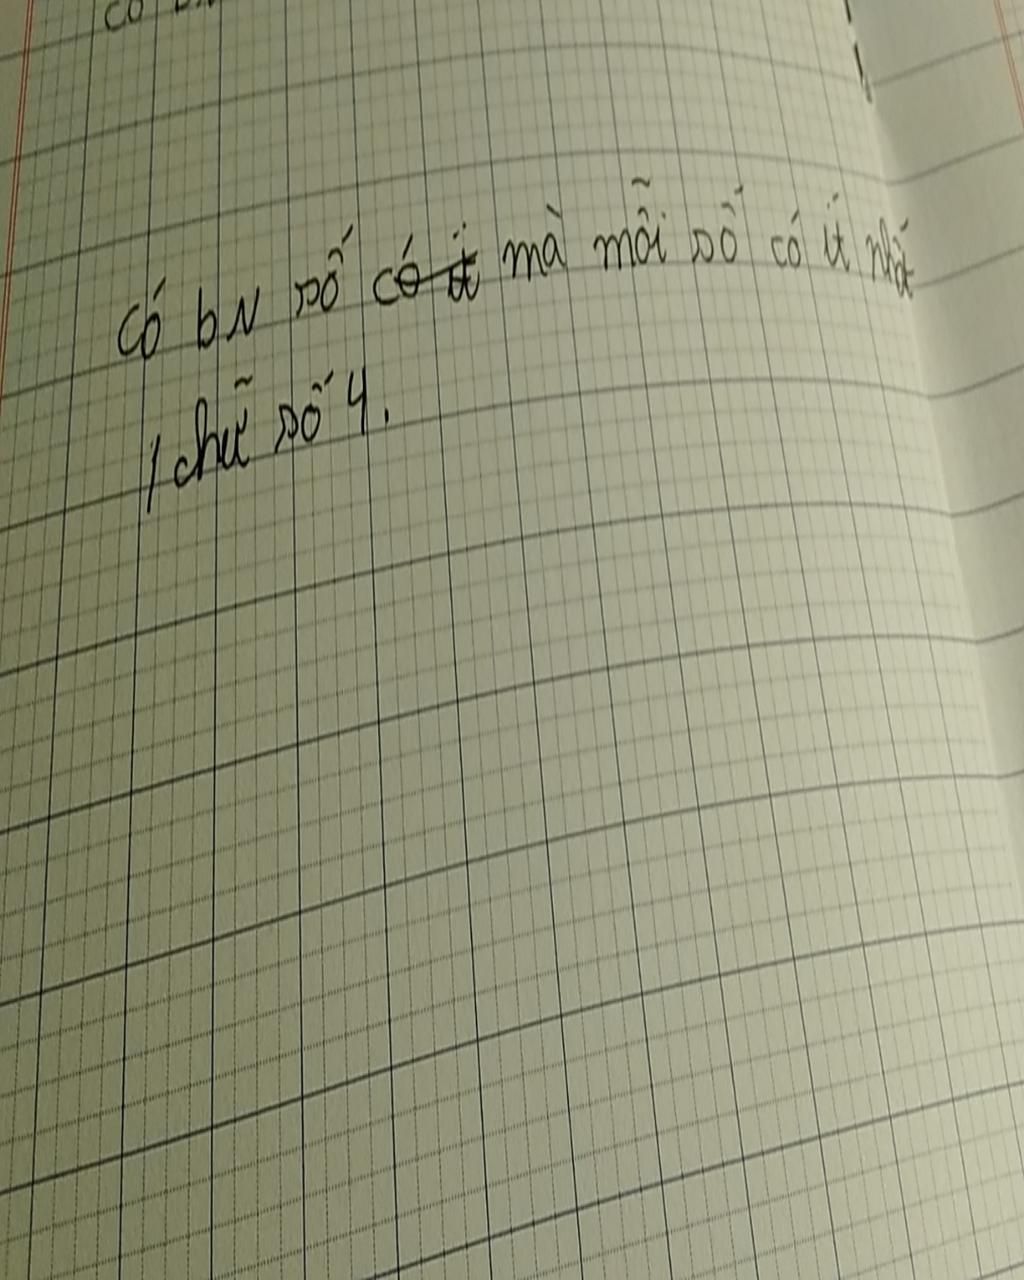 có bN số có ít mà mỗi số có ít nhất
1 chữ số 4.